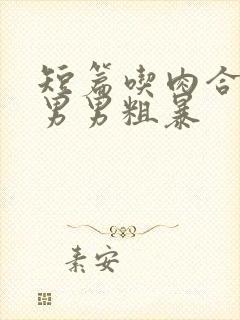 短篇喫肉合
男男粗暴
素安